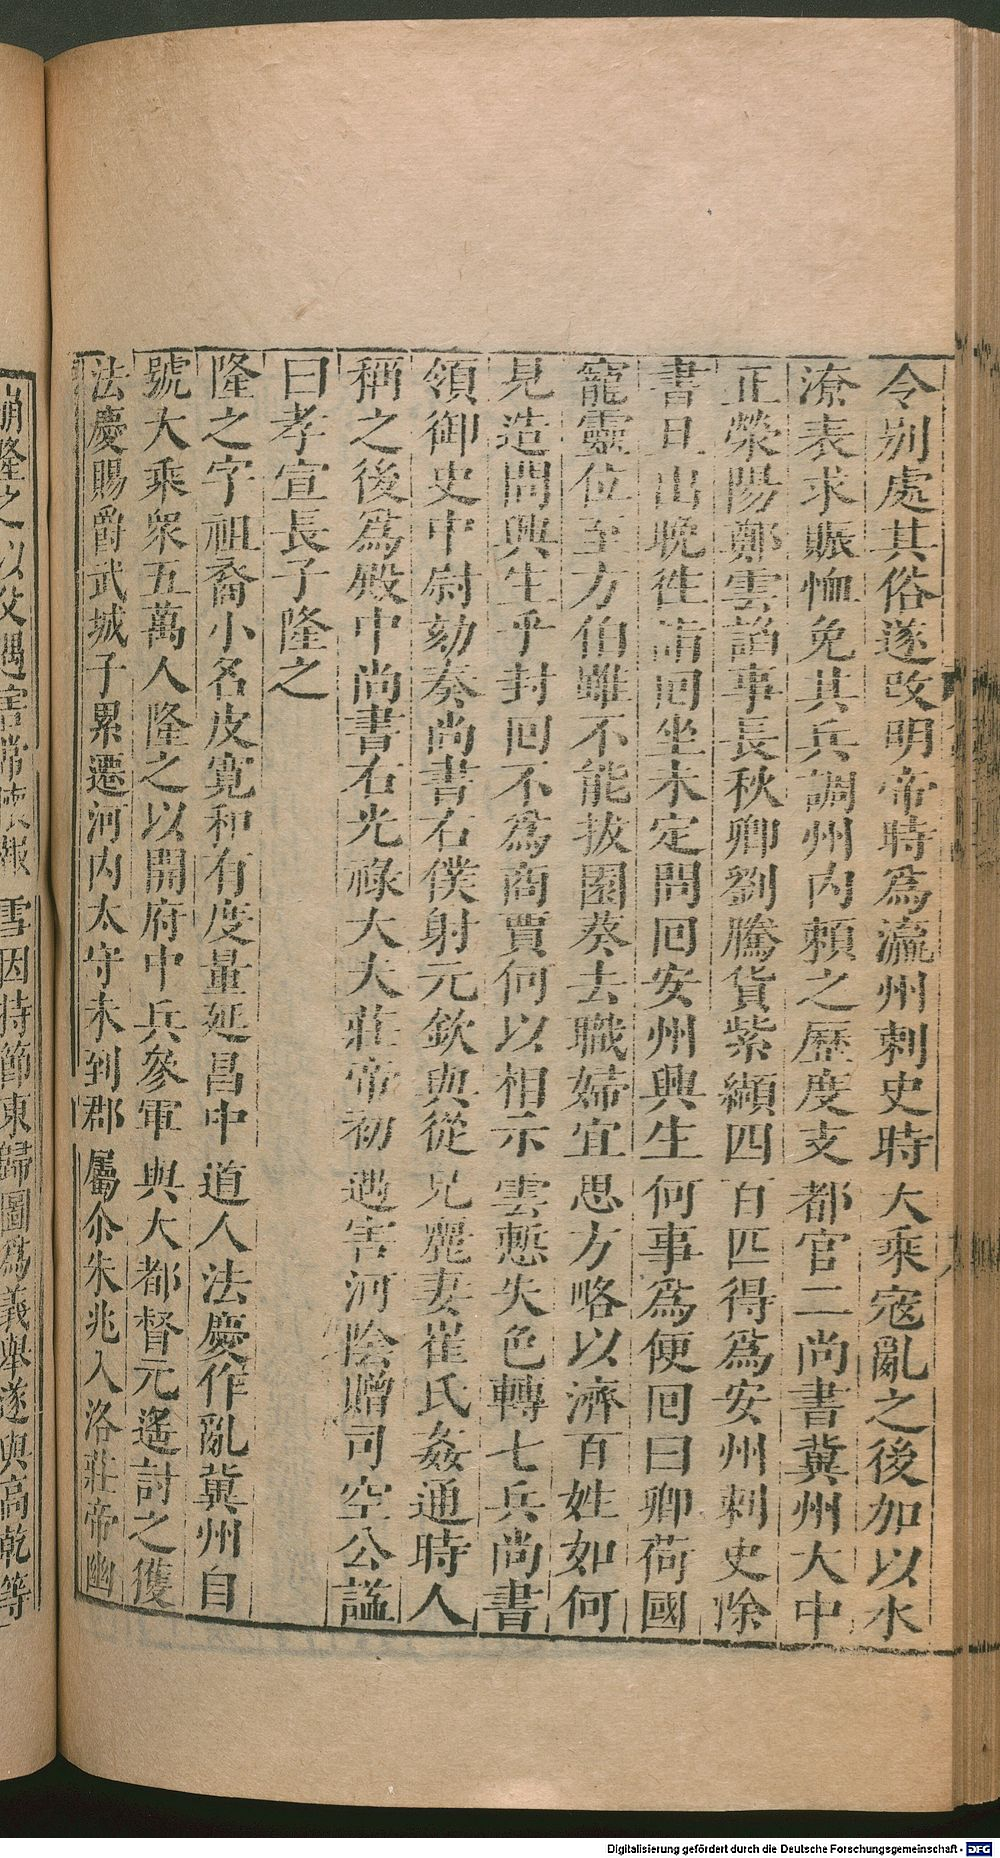 令別處其俗遂改明帝時爲瀛州刺史時大乘寇亂之後加以水
潦表求賑恤免其兵調州內賴之歷度支都官二尚書冀州大中
正滎陽鄭雲諂事長秋卿劉騰貨紫纈四百匹得爲安州刺史除
書旦出晩往請回坐未定問回安州興生何事爲便回曰卿荷國
寵靈位至方伯雖不能拔園葵去職婦宜思方略以濟百姓如何
見造問興生乎封回不爲商賈何以相示雲慙失色轉七兵尚書
領御史中尉劾奏尚書右僕射元欽與從兄麗妻崔氏姦通時人
稱之後爲殿中尚書右光祿大夫莊帝初遇害河陰贈司空公謚
曰孝宣長子隆之
隆之字祖裔小名皮寬和有度量延昌中道人法慶作亂冀州自
號大乘衆五萬人隆之以開府中兵參軍與大都督元遙討之獲
法慶賜爵武城子累遷河內太守未到郡屬尒朱兆入洛莊帝幽
崩隆之以父遇害常懷報雪因持節東歸圖爲義舉遂與高乾等
Digitalisierung gefördert durch die Deutsche Forschungsgemeinschaft - DFG